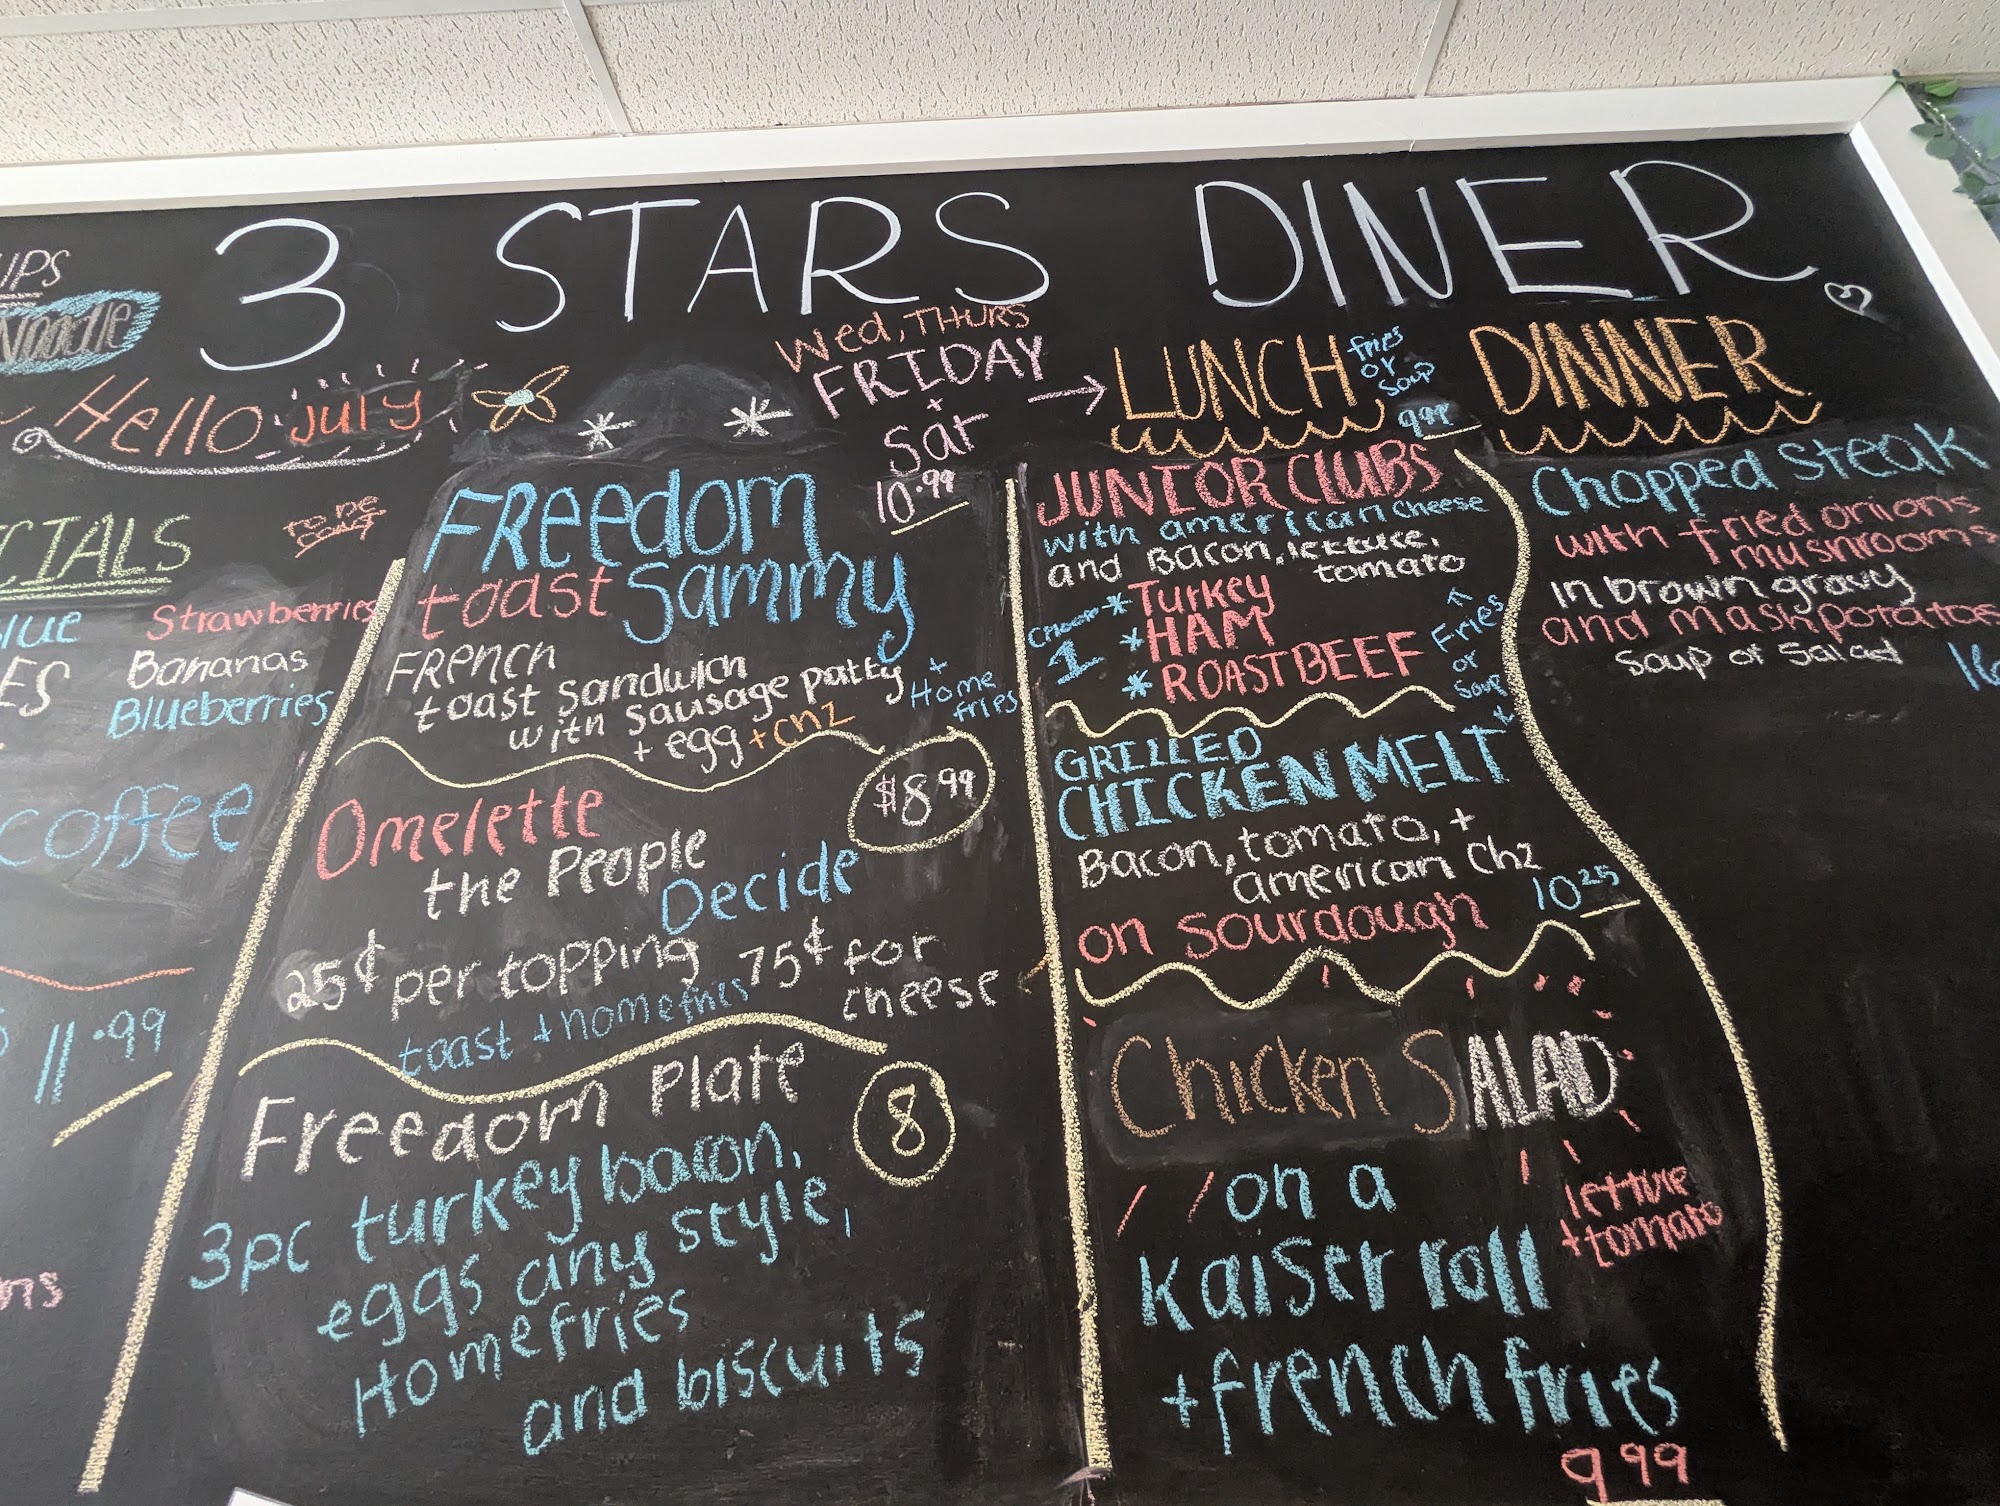 3 STARS DINER
Noodle
Hello July
Wed, THURS
FRIDAY
+
Sat
10.99
TO DE
Strawberries
Bananas
Blueberries
coffee
11.99
FREEdom
toast Sammy
FRENCH
toast sandwich
with sausage patty
+ egg + chz
+
Home
fries
Omelette
$8.99
the People
Decide
25¢ per topping 75¢ for
cheese
toast + homefries
Freedom Plate
8
3pc turkey bacon,
eggs any style,
Homefries
and biscuits
LUNCH
fries
or
Soup
9.99
JUNIOR CLUBS
with american cheese
and Bacon, lettuce,
tomato
1
* Turkey
* HAM
* ROAST BEEF
Fries
or
Soup
GRILLED
CHICKEN MELT
Bacon, tomato, +
american chz
on sourdough
10.25
Chicken SALAD
on a
kaiser roll
lettuce
+ tomato
+ french fries
9.99
DINNER
Chopped Steak
with fried onions
mushrooms
in brown gravy
and mashpotatoes
soup or salad